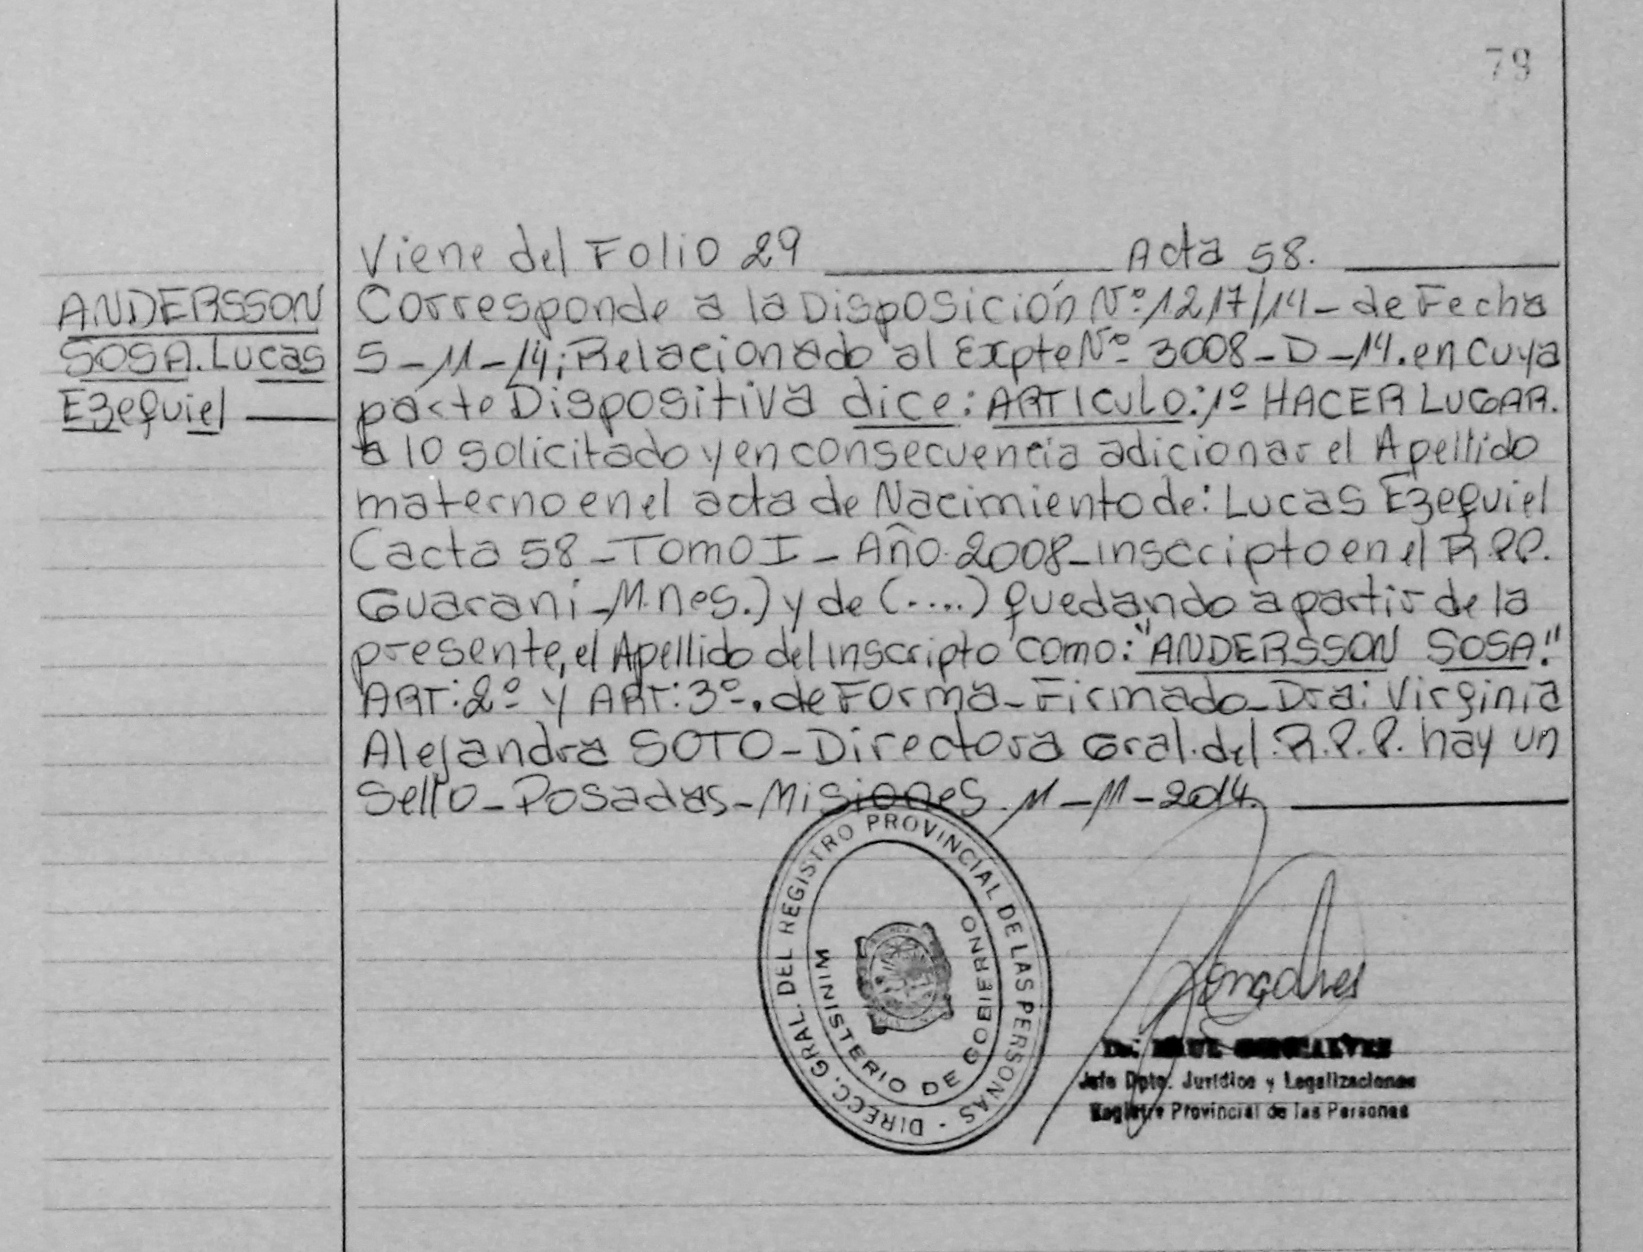 79
Viene del Folio 29 ____ Acta 58. ____
ANDERSSON
SOSA. Lucas
Ezequiel ____
Corresponde a la Disposición Nº 1217/14 - de Fecha
5-11-14; Relacionado al Expte Nº 3008-D-14. en cuya
parte Dispositiva dice: ARTICULO: 1º HACER LUGAR.
a lo solicitado y en consecuencia adicionar el Apellido
materno en el acta de Nacimiento de: Lucas Ezequiel
(acta 58 - Tomo I - Año 2008 - inscripto en el R.P.P.
Guaraní - M.nes.) y de (.....) quedando a partir de la
presente, el Apellido del inscripto como: "ANDERSSON SOSA."
ART: 2º y ART: 3º. de Forma - Firmado - Dra: Virginia
Alejandra SOTO - Directora Gral. del. R.P.P. hay un
Sello - Posadas - Misiones. 11-11-2014. ____
DIRECC. GRAL. DEL REGISTRO PROVINCIAL DE LAS PERSONAS -
MINISTERIO DE GOBIERNO
Gonçalves
Dr. RAUL GONCALVES
Jefe Dpto. Jurídico y Legalizaciones
Registro Provincial de las Personas